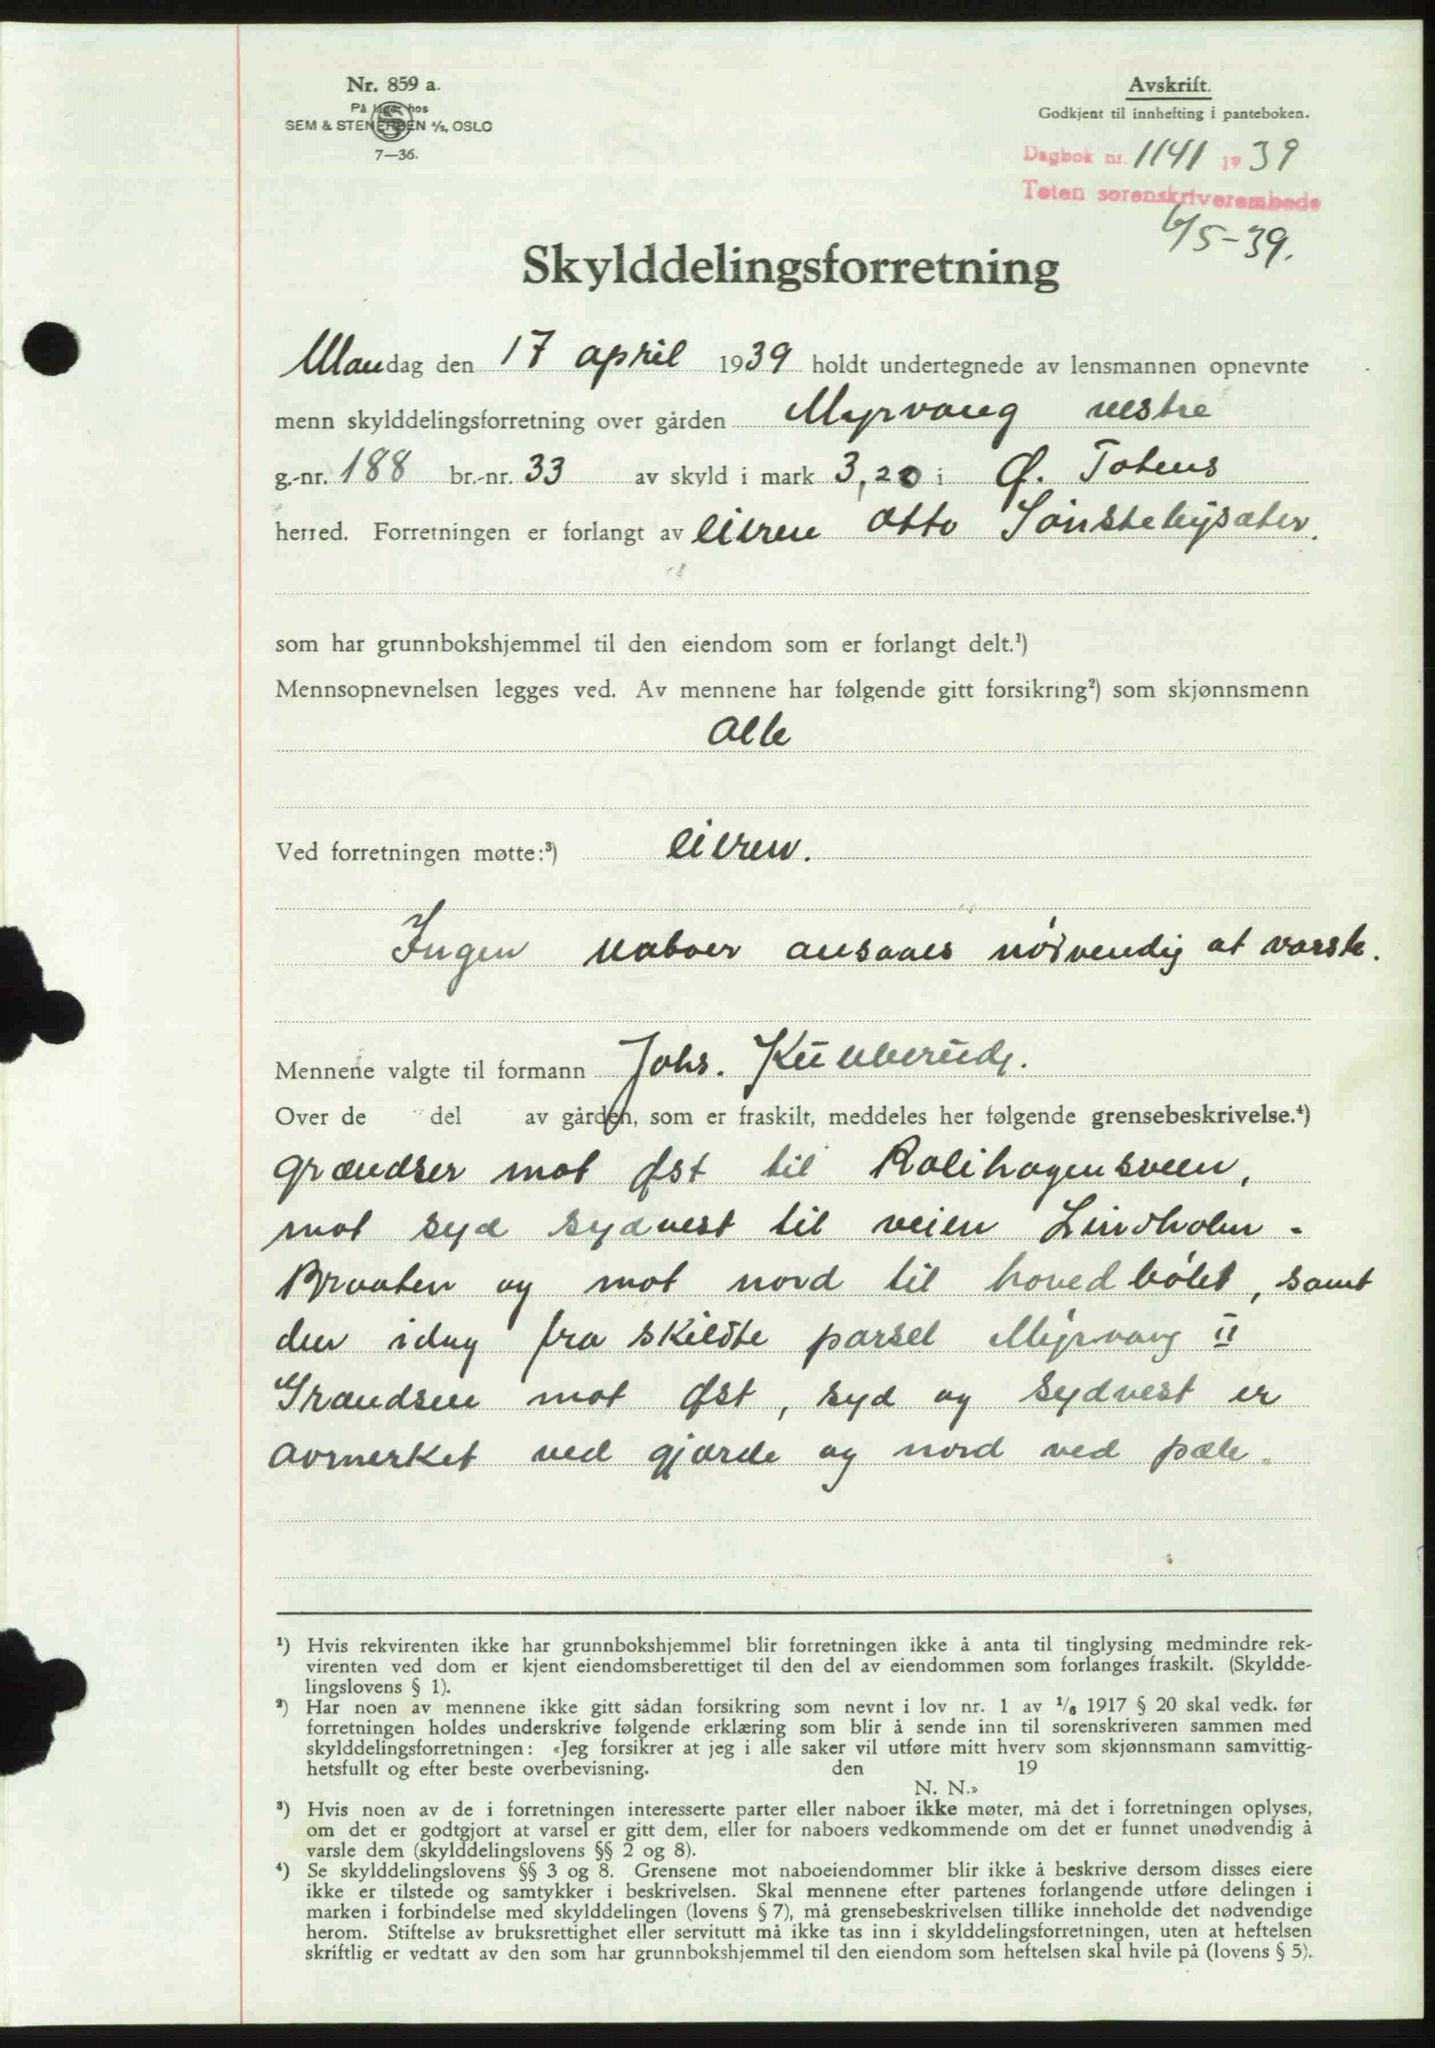 Nr. 859 a.
På lager hos
SEM & STENERSEN A/S, OSLO
7—36.
Avskrift.
Godkjent til innhefting i panteboken.
Dagbok nr. 1141 1939
Toten sorenskriverembede
6/5-39.
Skylddelingsforretning
Mandag den 17 april 1939 holdt undertegnede av lensmannen opnevnte
menn skylddelingsforretning over gården Myrvang vestre
g.-nr. 188 br.-nr. 33 av skyld i mark 3,20 i Ø. Totens
herred. Forretningen er forlangt av eieren Otto
som har grunnbokshjemmel til den eiendom som er forlangt delt.¹)
Mennsopnevnelsen legges ved. Av mennene har følgende gitt forsikring²) som skjønnsmenn
Alle
Ved forretningen møtte:³) eieren.
Ingen naboer ansaaes nødvendig at varsle.
Mennene valgte til formann Johs. Kubberud.
Over de del av gården, som er fraskilt, meddeles her følgende grensebeskrivelse.⁴)
Grændser mot Øst til Rolihagensveen,
mot syd sydvest til veien Lindholm -
Braaten og mot nord til hovedbølet, samt
den idag fra skildte parsel Myrvang II
Grændsen mot Øst, syd og sydvest er
avmerket ved gjærde og nord ved pæle.
¹) Hvis rekvirenten ikke har grunnbokshjemmel blir forretningen ikke å anta til tinglysing medmindre rek-
virenten ved dom er kjent eiendomsberettiget til den del av eiendommen som forlanges fraskilt. (Skyldde-
lingslovens § 1).
²) Har noen av mennene ikke gitt sådan forsikring som nevnt i lov nr. 1 av 1/6 1917 § 20 skal vedk. før
forretningen holdes underskrive følgende erklæring som blir å sende inn til sorenskriveren sammen med
skylddelingsforretningen: «Jeg forsikrer at jeg i alle saker vil utføre mitt hverv som skjønnsmann samvittig-
hetsfullt og efter beste overbevisning. den 19
N. N.»
³) Hvis noen av de i forretningen interesserte parter eller naboer ikke møter, må det i forretningen oplyses,
om det er godtgjort at varsel er gitt dem, eller for naboers vedkommende om det er funnet unødvendig å
varsle dem (skylddelingslovens §§ 2 og 8).
⁴) Se skylddelingslovens §§ 3 og 8. Grensene mot naboeiendommer blir ikke å beskrive dersom disses eiere
ikke er tilstede og samtykker i beskrivelsen. Skal mennene efter partenes forlangende utføre delingen i
marken i forbindelse med skylddelingen (lovens § 7), må grensebeskrivelsen tillike inneholde det nødvendige
herom. Stiftelse av bruksrettighet eller servitutt må ikke tas inn i skylddelingsforretningen, uten at heftelsen
skriftlig er vedtatt av den som har grunnbokshjemmel til den eiendom som heftelsen skal hvile på (lovens § 5).